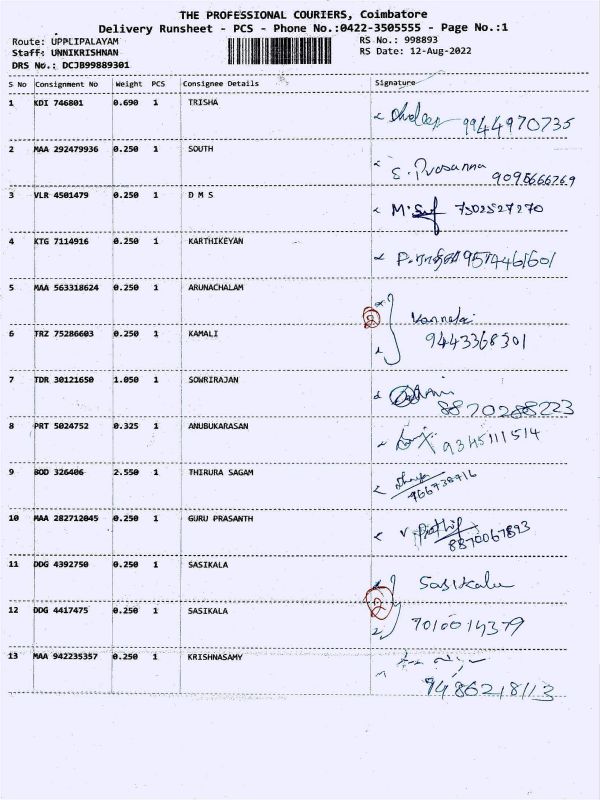 THE PROFESSIONAL COURIERS, Coimbatore
Delivery Runsheet - PCS - Phone No.:0422-3505555 - Page No.:1
Route: UPPLIPALAYAM RS No.: 998893
Staff: UNNIKRISHNAN RS Date: 12-Aug-2022
DRS No.: DCJB99889301
S No Consignment No Weight PCS Consignee Details Signature
1 KDI 746801 0.690 1 TRISHA 9944970735
2 MAA 292479936 0.250 1 SOUTH E. Prasanna 9095666769
3 VLR 4501479 0.250 1 D M S 7502527270
4 KTG 7114916 0.250 1 KARTHIKEYAN
5 MAA 563318624 0.250 1 ARUNACHALAM
2
6 TRZ 75286603 0.250 1 KAMALI 9443368301
7 TDR 30121650 1.050 1 SOWRIRAJAN 8870288223
8 PRT 5024752 0.325 1 ANUBUKARASAN 9345111514
9 BOD 326406 2.550 1 THIRURA SAGAM
10 MAA 282712045 0.250 1 GURU PRASANTH 8870067893
11 DDG 4392750 0.250 1 SASIKALA Sasikala
2
12 DDG 4417475 0.250 1 SASIKALA 7010014379
13 MAA 942235357 0.250 1 KRISHNASAMY 9486218113